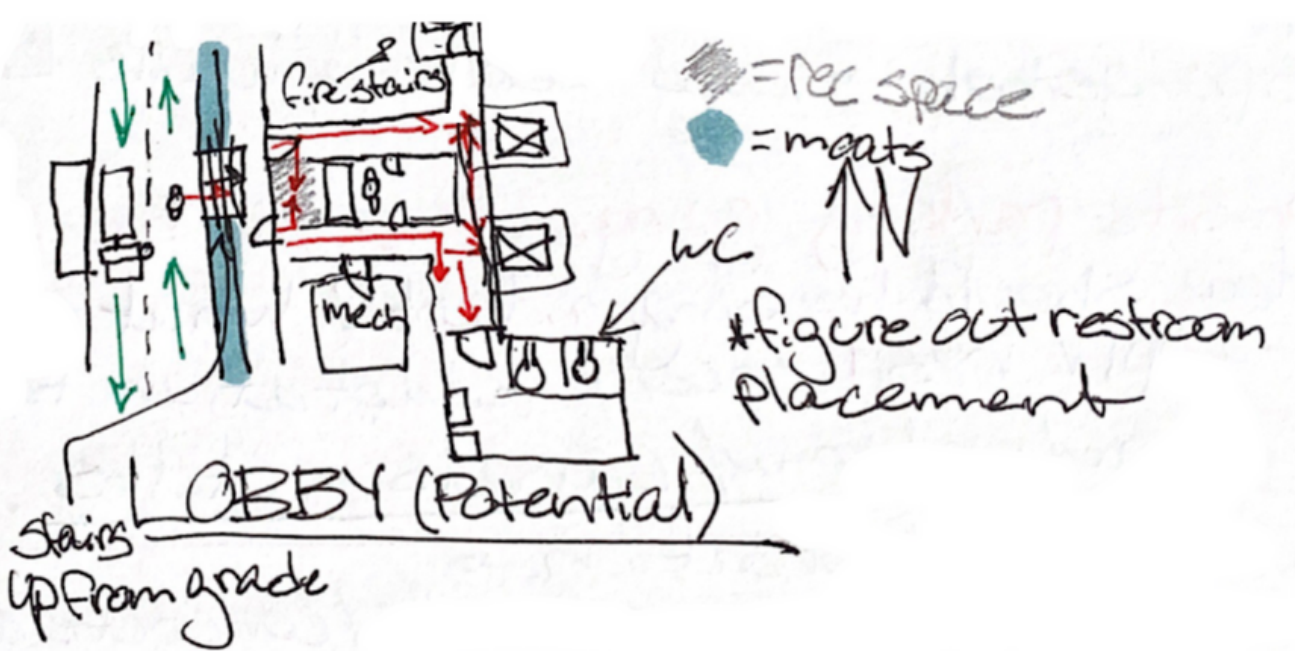 fire stairs
= rec space
= moats
N
WC
mech
*figure out restroom
placement
LOBBY (Potential)
stairs
up from grade